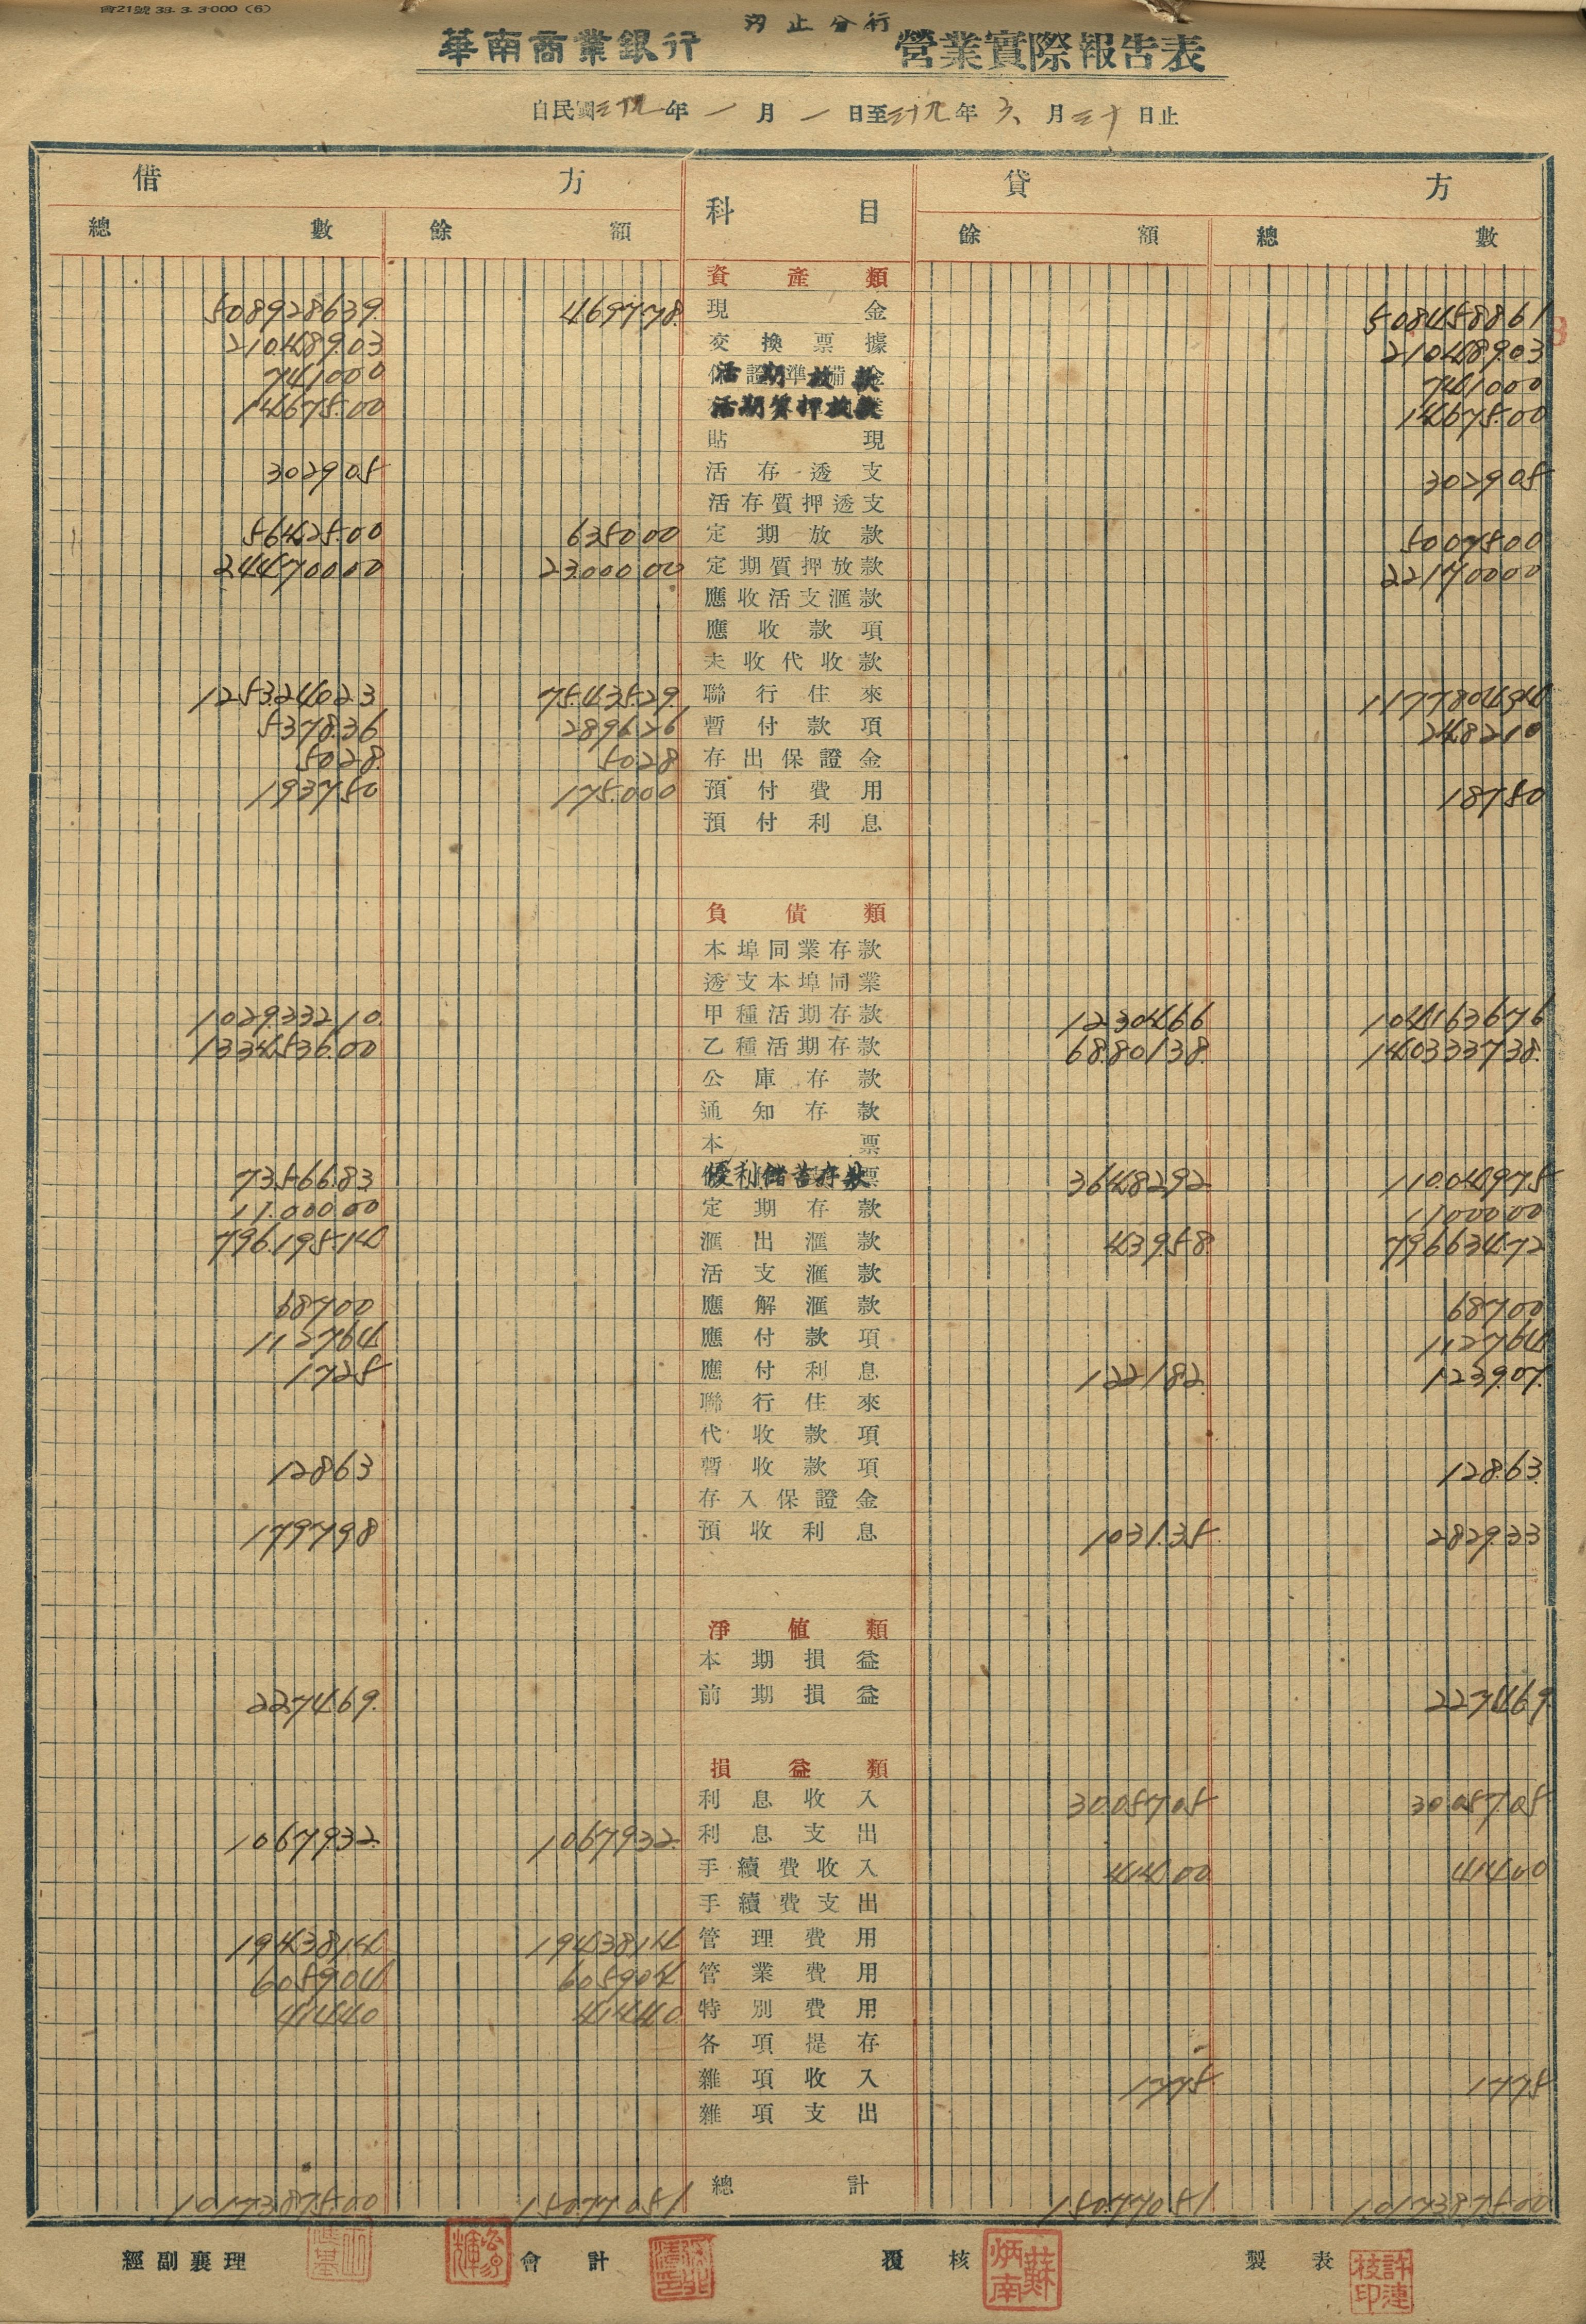 會21號 38.3.3.000 (6)
汐止分行
華南商業銀行 營業實際報告表
自民國三十九年一月一日至三十九年六月三十日止
借方 科目 貸方
總數 餘額 餘額 總數
資產類
508928639 469778 現金 508458861
21048903 交換票據 21048903
741000 活期放款 741000
1467500 活期質押放款 1467500
貼現
302905 活存透支 302905
活存質押透支
5642500 635000 定期放款 5007500
24470000 2300000 定期質押放款 22170000
應收活支滙款
應收款項
未收代收款
125324023 7543529 聯行往來 117780494
537836 289626 暫付款項 248210
5028 5028 存出保證金
193750 175000 預付費用 18750
預付利息
負債類
本埠同業存款
透支本埠同業
102933210 甲種活期存款 1230466 104163676
133453600 乙種活期存款 6880138 140333738
公庫存款
通知存款
本票
7356683 優利儲蓄存款 3648292 11004975
1100000 定期存款 1100000
79619514 滙出滙款 43958 79663472
活支滙款
68700 應解滙款 68700
112764 應付款項 112764
1725 應付利息 122182 123907
聯行往來
代收款項
12863 暫收款項 12863
存入保證金
179798 預收利息 103135 282933
淨值類
本期損益
227469 前期損益 227469
損益類
利息收入 3005705 3005705
1067932 1067932 利息支出
手續費收入 41400 41400
手續費支出
1943814 1943814 管理費用
605904 605904 管業費用
41440 41440 特別費用
各項提存
雜項收入 1775 1775
雜項支出
1017387500 15077051 總計 15077051 1017387500
經副襄理 會計 覆核 蘇炳南 製表 許連枝印